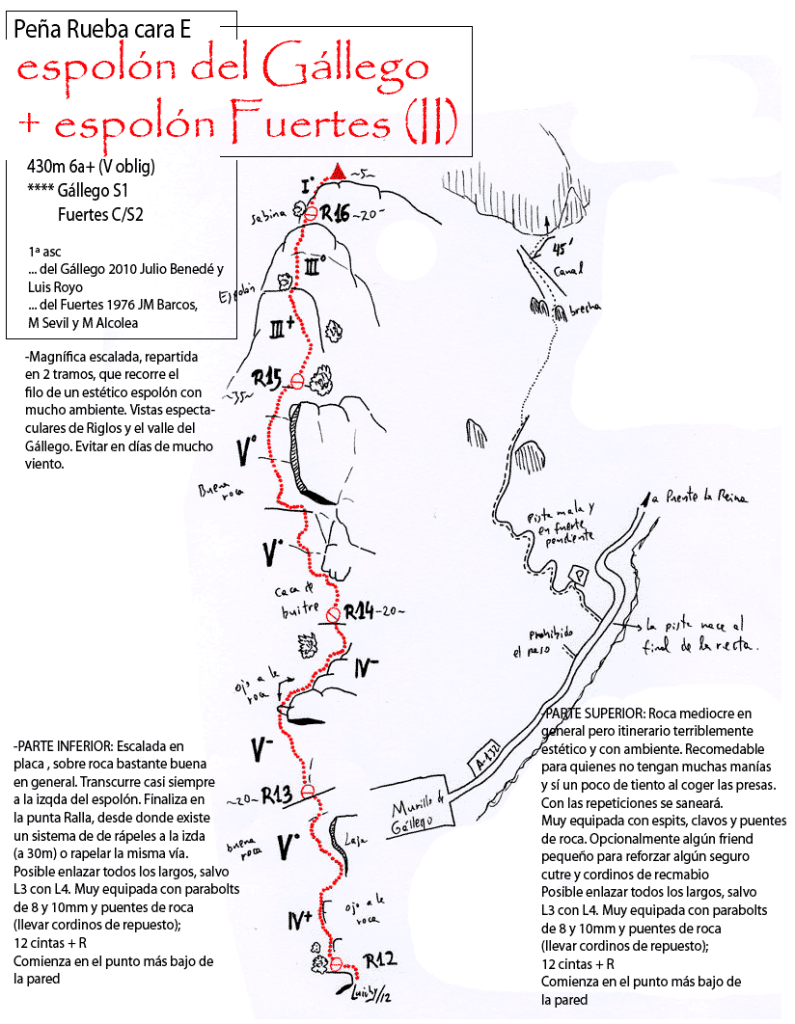 Peña Rueba cara E
espolón del Gállego
+ espolón Fuertes (II)
430m 6a+ (V oblig)
**** Gállego S1
Fuertes C/S2
1ª asc
... del Gállego 2010 Julio Benedé y
Luis Royo
... del Fuertes 1976 JM Barcos,
M Sevil y M Alcolea
-Magnífica escalada, repartida
en 2 tramos, que recorre el
filo de un estético espolón con
mucho ambiente. Vistas especta-
culares de Riglos y el valle del
Gállego. Evitar en días de mucho
viento.
~5~
I°
Sabina
R16 ~20~
III°
Espolón
III+
R15
~35~
V°
Buena
roca
V°
Caca de
buitre
R14 ~20~
IV-
ojo a la
roca
V-
~20~ R13
buena
roca
V°
Laja
IV+
ojo a la
roca
R12
Luichy/12
45°
Canal
brecha
a Puente la Reina
Pista mala y
en fuerte
pendiente
P
Prohibido
el paso
La pista nace al
final de la recta.
A-132
Murillo de
Gállego
-PARTE INFERIOR: Escalada en
placa , sobre roca bastante buena
en general. Transcurre casi siempre
a la izqda del espolón. Finaliza en
la punta Ralla, desde donde existe
un sistema de de rápeles a la izda
(a 30m) o rapelar la misma vía.
Posible enlazar todos los largos, salvo
L3 con L4. Muy equipada con parabolts
de 8 y 10mm y puentes de roca
(llevar cordinos de repuesto);
12 cintas + R
Comienza en el punto más bajo de
la pared
-PARTE SUPERIOR: Roca mediocre en
general pero itinerario terriblemente
estético y con ambiente. Recomedable
para quienes no tengan muchas manías
y sí un poco de tiento al coger las presas.
Con las repeticiones se saneará.
Muy equipada con espits, clavos y puentes
de roca. Opcionalmente algún friend
pequeño para reforzar algún seguro
cutre y cordinos de recmabio
Posible enlazar todos los largos, salvo
L3 con L4. Muy equipada con parabolts
de 8 y 10mm y puentes de roca
(llevar cordinos de repuesto);
12 cintas + R
Comienza en el punto más bajo de
la pared